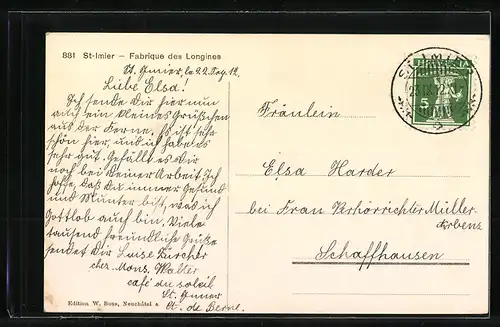 881 St-Imier – Fabrique des Longines
St. Imier, le 22. Sep. 12.
Liebe Elsa!
Ich sende Dir hier nun
auch ein kleines Grüßchen
aus der Ferne. Es ist sehr
schön hier, und ich habe es
sehr gut. Gefällt es Dir
noch bei Deiner Arbeit. Ich
hoffe, daß Du immer Gesund
und Munter bist, was ich
Gottlob auch bin. Viele
tausend freundliche Grüße
sendet Dir Luise Kircher
chez Mons. Walter
café du soleil
St. Imier
Ct. de Berne.
Edition W. Buss, Neuchâtel
HELVETIA
5
ST. IMIER
Fräulein
Elsa Harder
bei Frau Verhörrichter Müller-
Schaffhausen